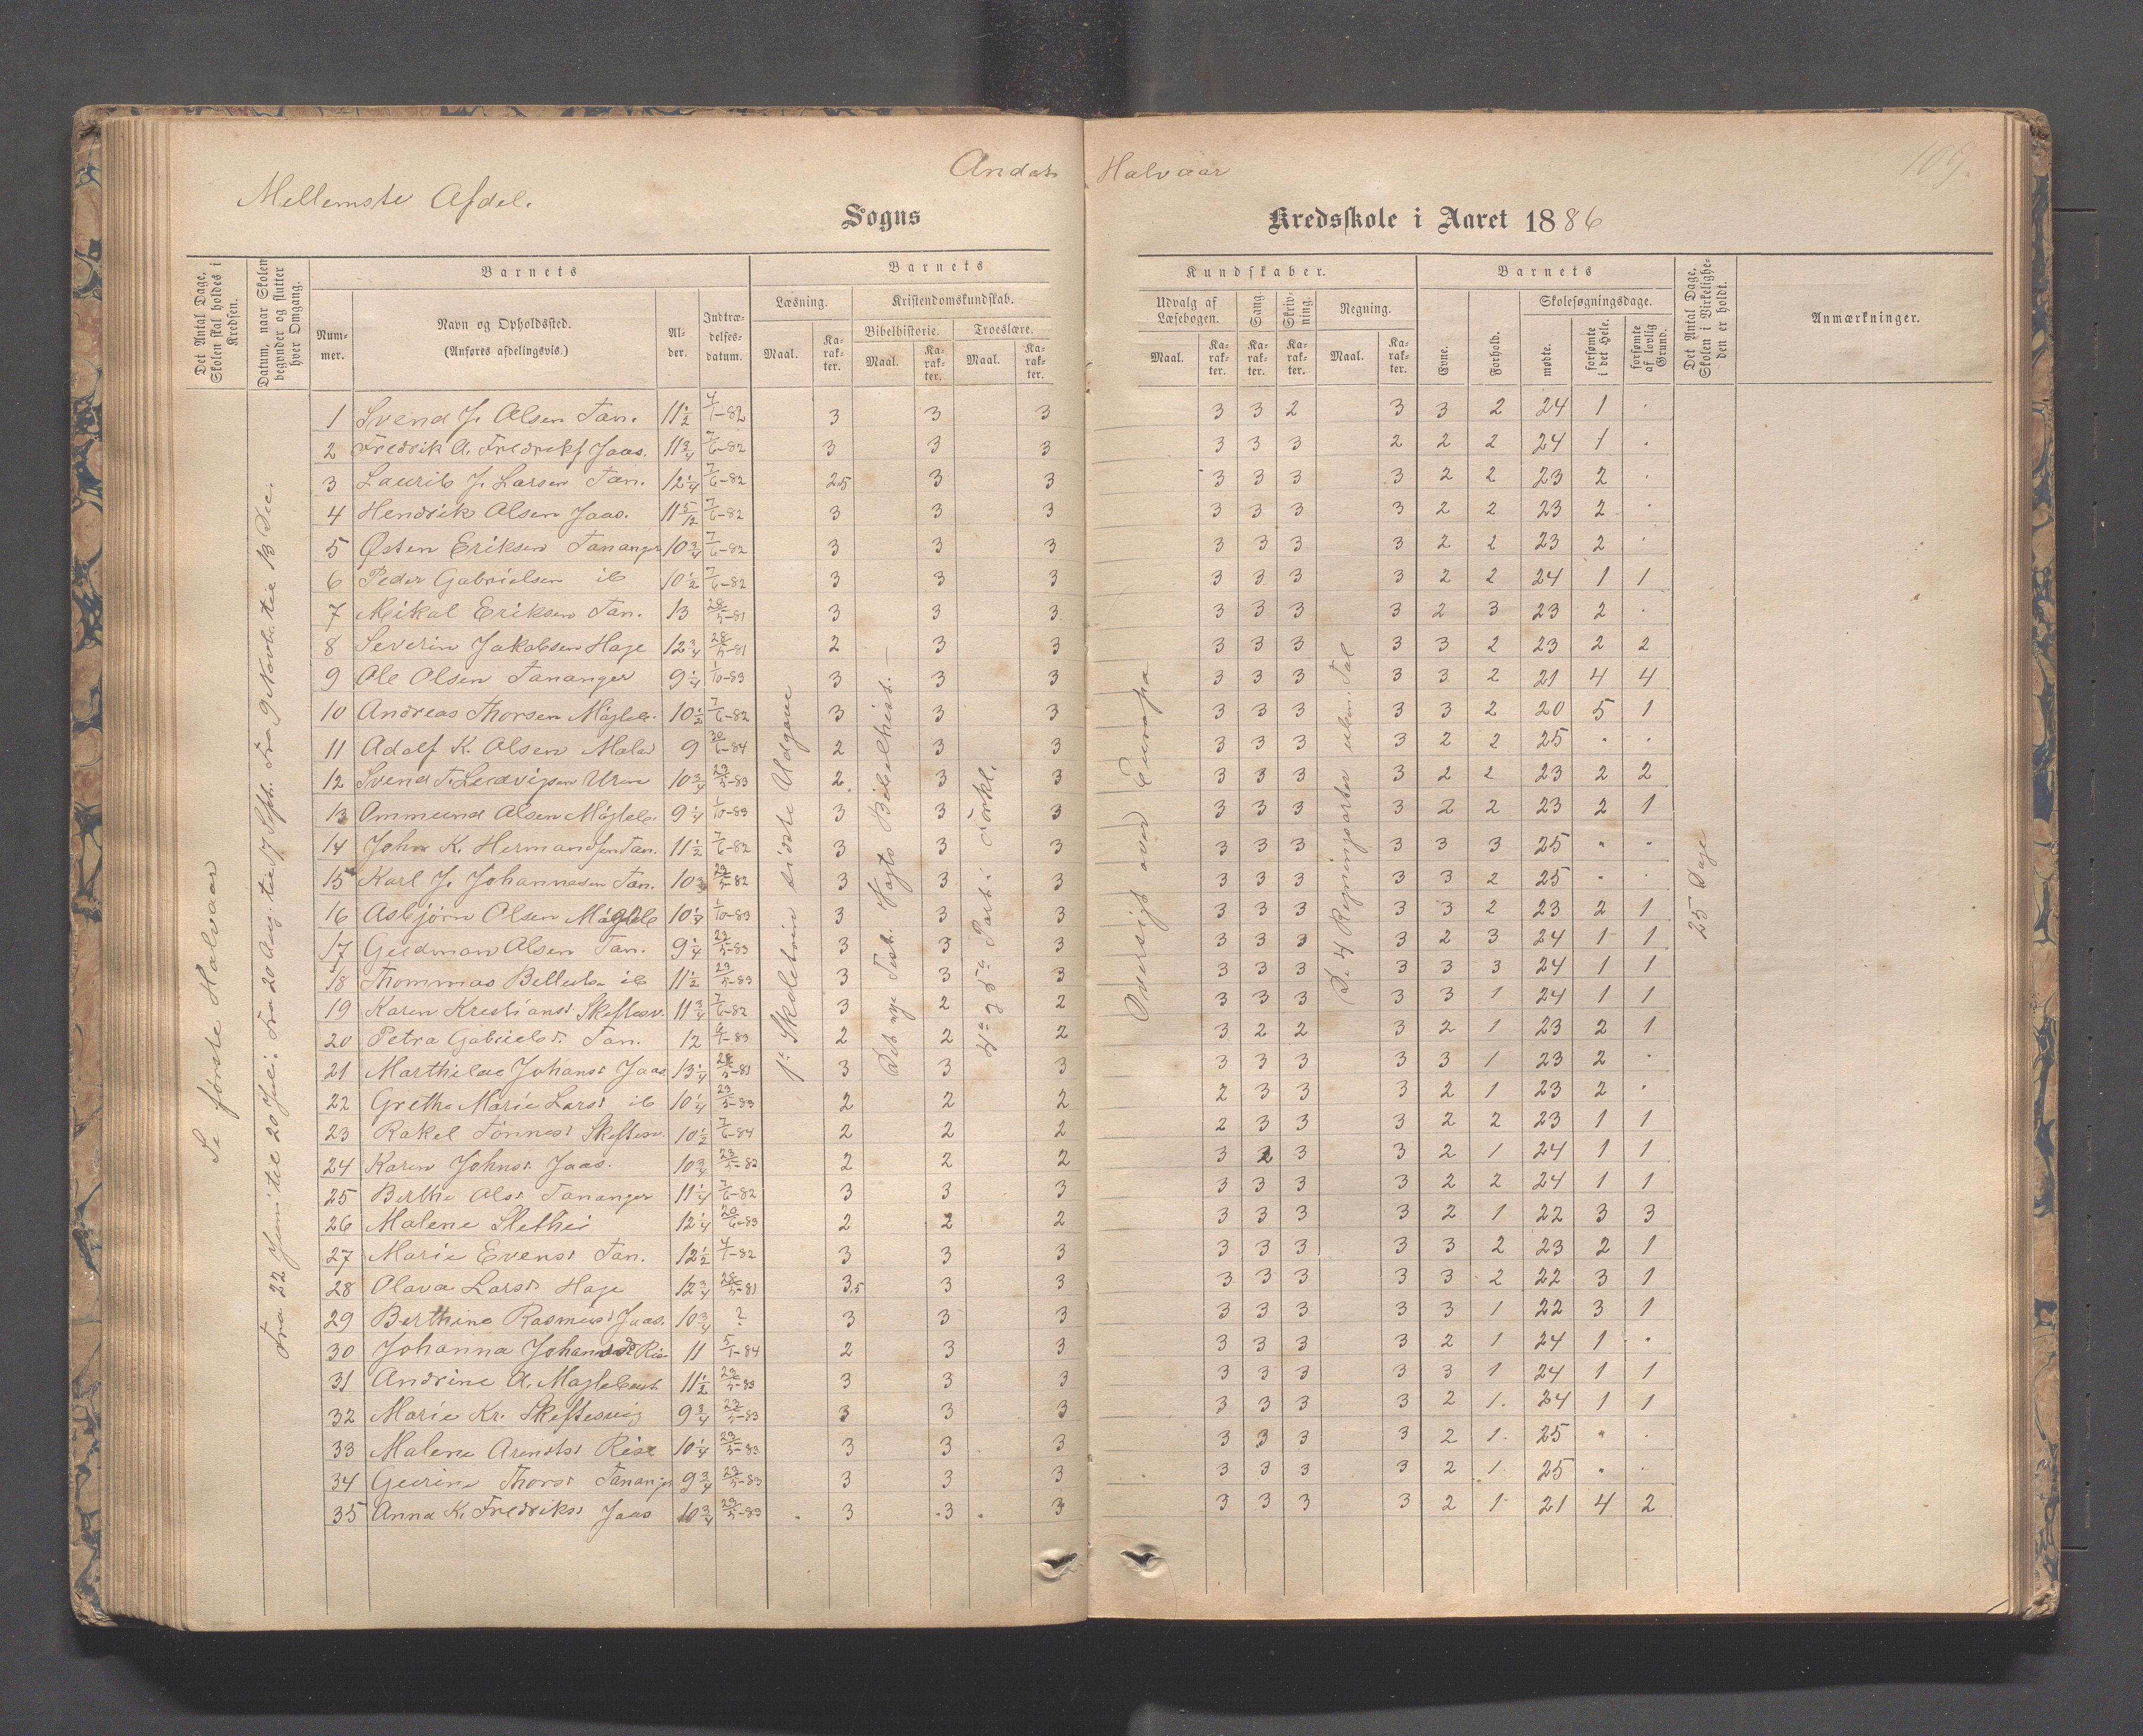 Mellemste Afdel.
Andet Halvaar
109
Sogns Kredsskole i Aaret 1886
Det Antal Dage, Skolen skal holdes i Kredsen.
Datum, naar Skolen begynder og slutter hver Omgang.
Barnets
Nummer.
Navn og Opholdssted.
(Anføres afdelingsvis.)
Alder.
Indtrædelsesdatum.
Barnets Kundskaber.
Læsning.
Maal.
Karakter.
Kristendomskundskab.
Bibelhistorie.
Maal.
Karakter.
Troeslære.
Maal.
Karakter.
Udvalg af Læsebogen.
Maal.
Karakter.
Sang.
Karakter.
Skrivning.
Karakter.
Regning.
Maal.
Karakter.
Barnets
Evne.
Forhold.
Skolesøgningsdage.
mødte.
forsømte i det Hele.
forsømte af lovlig Grund.
Det Antal Dage, Skolen i Virkeligheden er holdt.
Anmærkninger.
Se første Halvaar
Fra 22 Juni til 20 Juli. Fra 20 Aug. til 17 Sept. Fra 9 Novbr. til 13 Dec.
1ste Skoletrin sidste Udgave
Det nye Test. Vogts Bibelhist.
4de og 5te Part i Forkl.
Oversigt over Europa
De 4 Regningsarter uben. Tal
25 Dage
1 Svend J. Olsen Tan. 11 1/2 4/1-82 3 3 3 3 3 2 3 3 2 24 1 .
2 Fredrik A. Fredriks Jaas. 11 3/4 7/6-82 3 3 3 3 3 3 2 2 2 24 1 .
3 Laurits J. Larsen Tan. 12 1/4 7/6-82 2,5 3 3 3 3 3 3 2 2 23 2 .
4 Hendrik Olsen Jaas. 11 5/12 7/6-82 3 3 3 3 3 3 3 2 2 23 2 .
5 Østen Eriksen Tananger 10 3/4 7/6-82 3 3 3 3 3 3 3 2 2 23 2 .
6 Peder Gabrielsen ib 10 1/2 7/6-82 3 3 3 3 3 3 3 2 2 24 1 1
7 Mikal Eriksen Tan. 13 28/5-81 3 3 3 3 3 3 3 2 3 23 2 .
8 Severin Jakobsen Hage 12 3/4 28/5-81 2 3 3 3 3 3 3 3 2 23 2 2
9 Ole Olsen Tananger 9 1/4 1/10-83 3 3 3 3 3 3 3 3 2 21 4 4
10 Andreas Thorsen Mógleb. 10 1/2 7/6-82 3 3 3 3 3 3 3 3 2 20 5 1
11 Adolf K. Olsen 9 30/6-84 2 3 3 3 3 3 3 2 2 25 " "
12 Svend T. Ludvigsen 10 3/4 23/5-83 2 3 3 3 3 3 3 2 2 23 2 2
13 Ommund Olsen Mógleb. 9 1/4 1/10-83 3 3 3 3 3 3 3 2 2 23 2 1
14 John K. Hermandsen Tan. 11 1/2 7/6-82 3 3 3 3 3 3 3 3 3 25 " "
15 Karl J. Johannesen Tan. 10 3/4 23/5-82 3 3 3 3 3 3 3 3 2 25 " .
16 Asbjørn Olsen Mógleb 10 1/4 1/10-83 3 3 3 3 3 3 3 3 2 23 2 1
17 Gudman Olsen Tan. 9 1/4 23/5-83 3 3 3 3 3 3 3 2 3 24 1 1
18 Thommas ib 11 1/2 23/5-83 3 3 3 3 3 3 3 3 3 24 1 1
19 Karen Kristiansd Skeftesv. 11 3/4 7/6-82 3 2 2 3 3 3 3 3 1 24 1 1
20 Petra Gabrielsd. Tan. 12 4/1-83 2 2 2 3 2 2 3 2 1 23 2 1
21 Marthilde Johansd Jaas 13 1/4 28/5-81 3 3 3 3 3 3 3 3 1 23 2 .
22 Grethe Marie Larsd ib 10 1/4 23/5-83 2 2 2 2 3 3 3 2 1 23 2 .
23 Rakel Tønnesd Skeftesv. 10 1/2 7/6-84 2 2 2 2 3 3 3 2 2 23 1 1
24 Karen Johnsd. Jaas. 10 3/4 23/5-82 2 2 2 3 2 3 3 2 1 24 1 1
25 Berthe Olsd Tananger 11 1/4 7/6-82 3 3 3 3 3 3 3 2 2 24 1 1
26 Malene 12 1/4 20/6-83 2 2 2 3 3 3 3 2 1 22 3 3
27 Marie Evensd Tan. 12 1/2 4/1-82 3 3 3 3 3 3 3 3 2 23 2 1
28 Olava Larsd. Hage 12 3/4 28/5-81 3,5 3 3 3 3 3 3 3 2 22 3 1
29 Berthine Rasmusd Jaas. 10 3/4 ? 3 3 3 3 3 3 3 3 1 22 3 1
30 Johanna Johansd Risa 11 5/1-84 2 3 3 3 3 3 3 2 1 24 1 "
31 Andrine A. Moglebust 11 1/2 23/5-83 3 3 3 3 3 3 3 3 1 24 1 1
32 Marie Kr. Skeftesvig 9 3/4 23/5-83 3 3 3 3 3 3 3 2 1. 24 1 1
33 Malene Arentsd Risa 10 1/4 23/5-83 3 3 3 3 3 3 3 2 1. 25 " .
34 Gurine Thorsd Tananger 9 3/4 23/5-83 3 3 3 3 3 3 3 2 1 25 " .
35 Anna K. Fredriksd Jaas 10 3/4 23/5-83 3 3 3 3 3 3 3 2 1 21 4 2